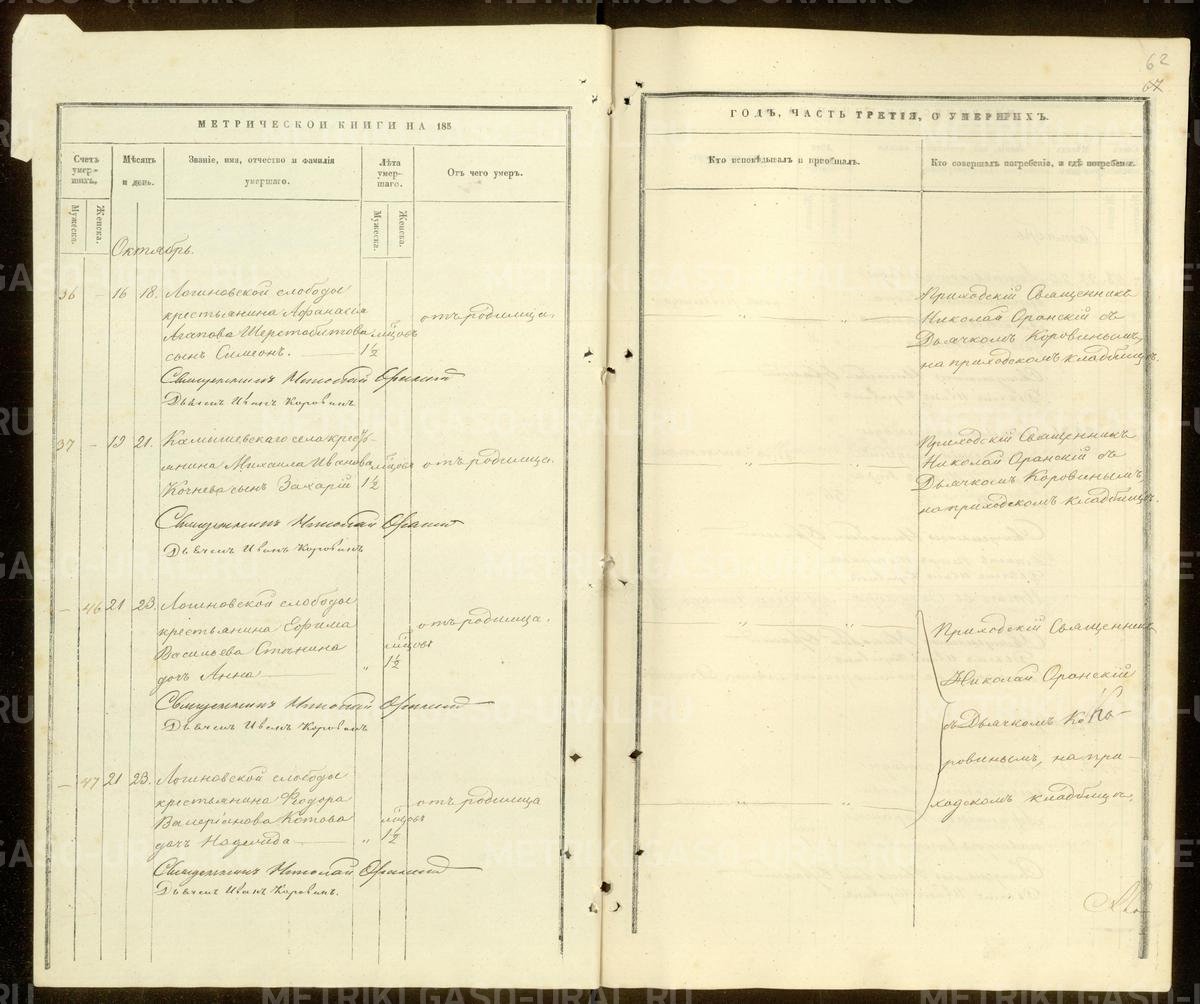 62
67
МЕТРИЧЕСКОЙ КНИГИ НА 185
ГОДЪ, ЧАСТЬ ТРЕТІЯ, О УМЕРШИХЪ.
Счетъ умер-
шихъ.
Мѣсяцъ
и день.
Званіе, имя, отчество и фамилія
умершаго.
Лѣта
умер-
шаго.
Отъ чего умеръ.
Кто исповѣдывалъ и пріобщалъ.
Кто совершалъ погребеніе, и гдѣ погребены.
Мужеска.
Женска.
Мужеска.
Женска.
Октябрь.
36 – 16 18. Логиновской слободы
крестьянина Афанасія
Агапова Шерстобитова
сынъ Симеонъ.
мѣсяцовъ
1½
отъ родимца.
Приходскій Священникъ
Николай Оранскій съ
Дьячкомъ Коровинымъ,
на приходскомъ кладбищѣ.
Священникъ Николай Оранскій
Дьячекъ Иванъ Коровинъ
37 – 19 21. Камышевскаго села кресть-
янина Михаила Иванова
Кочнева сынъ Захарій
1½
отъ родимца.
Приходскій Священникъ
Николай Оранскій съ
Дьячкомъ Коровинымъ,
на приходскомъ кладбищѣ.
Священникъ Николай Оранскій
Дьячекъ Иванъ Коровинъ
– 46 21 23. Логиновской слободы
крестьянина Ефима
Васильева
дочь Анна
1½
отъ родимца.
Приходскій Священникъ
Николай Оранскій
съ Дьячкомъ Ко-
ровинымъ, на при-
ходскомъ кладбищѣ.
Священникъ Николай Оранскій
Дьячекъ Иванъ Коровинъ
– 47 21 23. Логиновской слободы
крестьянина Ѳедора
Валеріанова Котова
дочь Надежда
1½
отъ родимца
Священникъ Николай Оранскій
Дьячекъ Иванъ Коровинъ.
METRIKI.GASO-URAL.RU